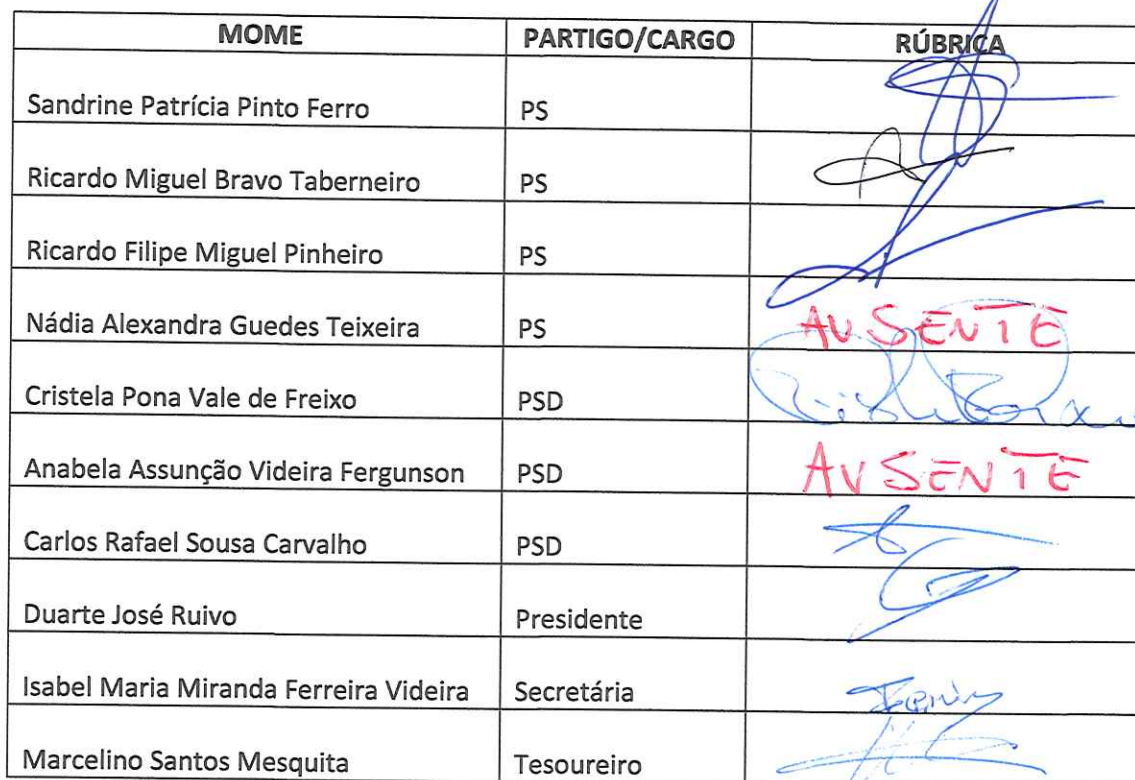 MOME PARTIGO/CARGO RÚBRICA
Sandrine Patrícia Pinto Ferro PS
Ricardo Miguel Bravo Taberneiro PS
Ricardo Filipe Miguel Pinheiro PS
Nádia Alexandra Guedes Teixeira PS AUSENTE
Cristela Pona Vale de Freixo PSD
Anabela Assunção Videira Fergunson PSD AUSENTE
Carlos Rafael Sousa Carvalho PSD
Duarte José Ruivo Presidente
Isabel Maria Miranda Ferreira Videira Secretária
Marcelino Santos Mesquita Tesoureiro